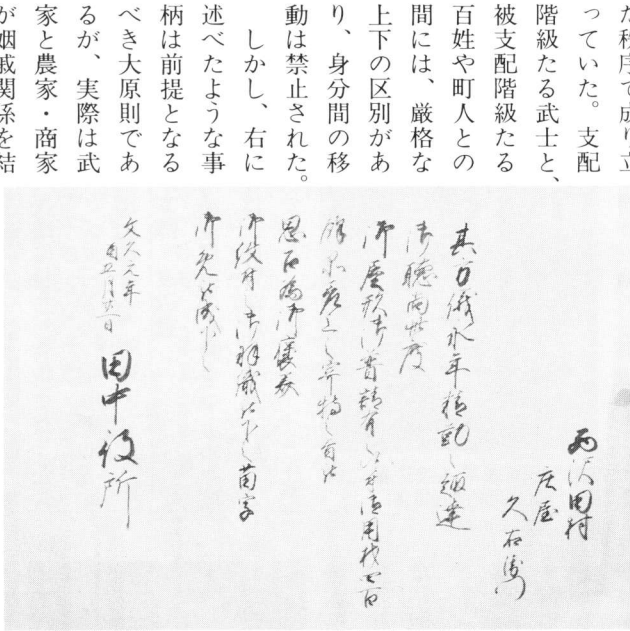 た秩序で成り立
っていた。支配
階級たる武士と、
被支配階級たる
百姓や町人との
間には、厳格な
上下の区別があ
り、身分間の移
動は禁止された。
しかし、右に
述べたような事
柄は前提となる
べき大原則であ
るが、実際は武
家と農家・商家
が姻戚関係を結
西沢田村
庄屋
久右衛門
其方儀永年精勤之趣達
御聴尚此度
思召為御褒美
苗字
御免被成下之
文久元年
田中役所